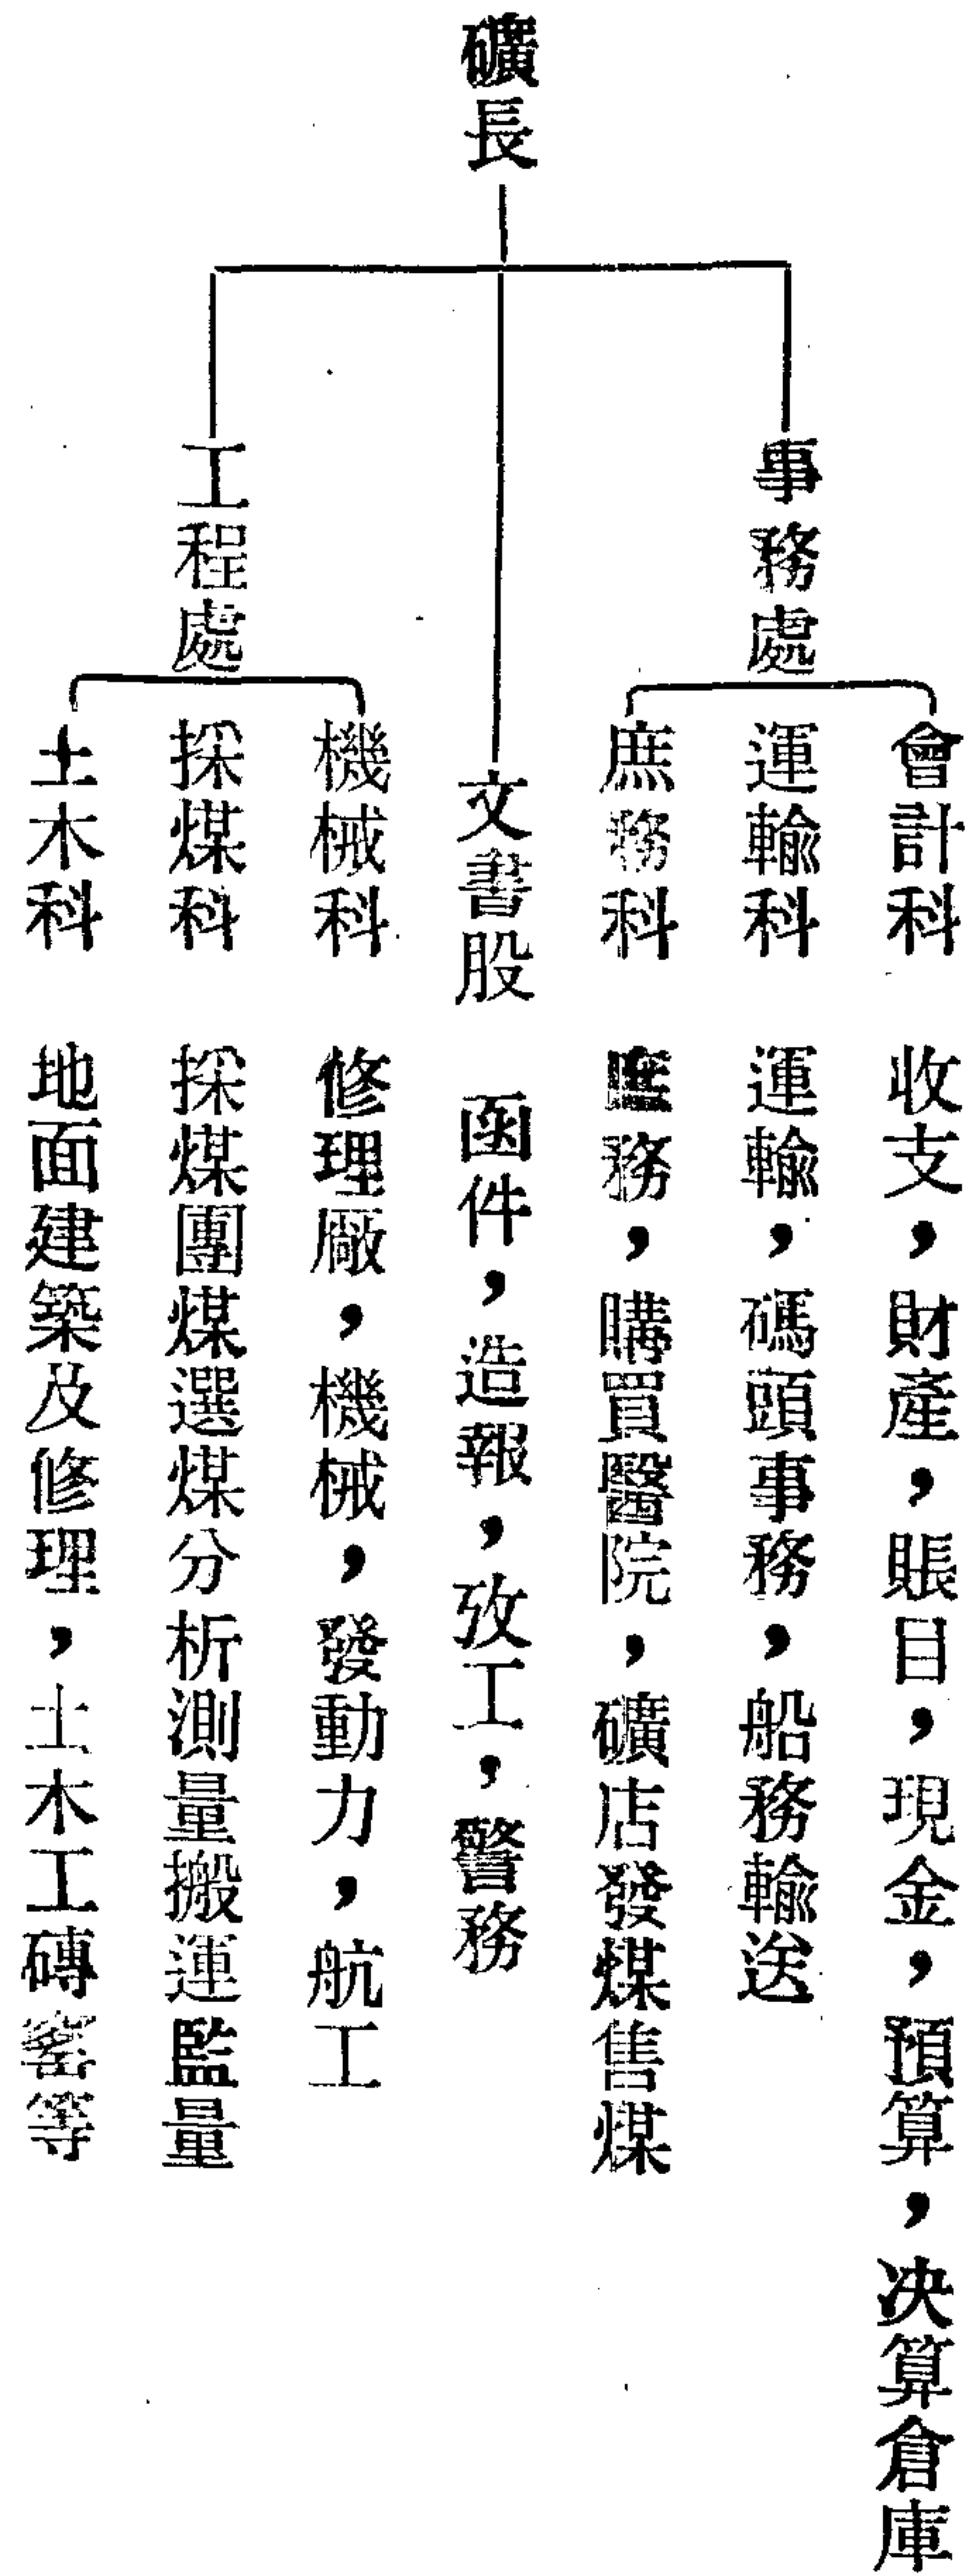 礦長
事務處
會計科 收支，財產，賬目，現金，預算，决算倉庫
運輸科 運輸，碼頭事務，船務輸送
庶務科 務，購買醫院，礦店發煤售煤
文書股 函件，造報，攷工，警務
工程處
機械科 修理廠，機械，發動力，航工
採煤科 採煤團煤選煤分析測量搬運監量
土木科 地面建築及修理，土木工磚窰等